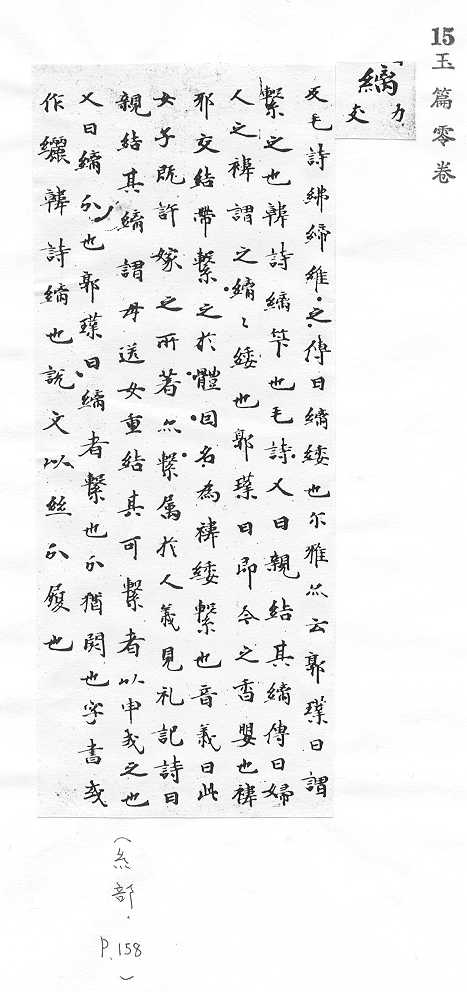 15玉篇零卷
縭力支
反毛詩紼縭維之傳曰縭緌也尒雅亦云郭璞曰謂
繫之也韓詩縭笮也毛詩又曰親結其縭傳曰婦
人之褘謂之縭〻緌也郭璞曰即今之香嬰也褘
邪交結帶繫之於體因名為褘緌繫也音義曰此
女子既許嫁之所著亦繫属於人義見礼記詩曰
親結其縭謂母送女重結其可繫者以申戒之也
又曰縭介也郭璞曰縭者繫也介猶閡也字書或
作纚韓詩縭也說文以絲介履也
(糸部.
P.158
)